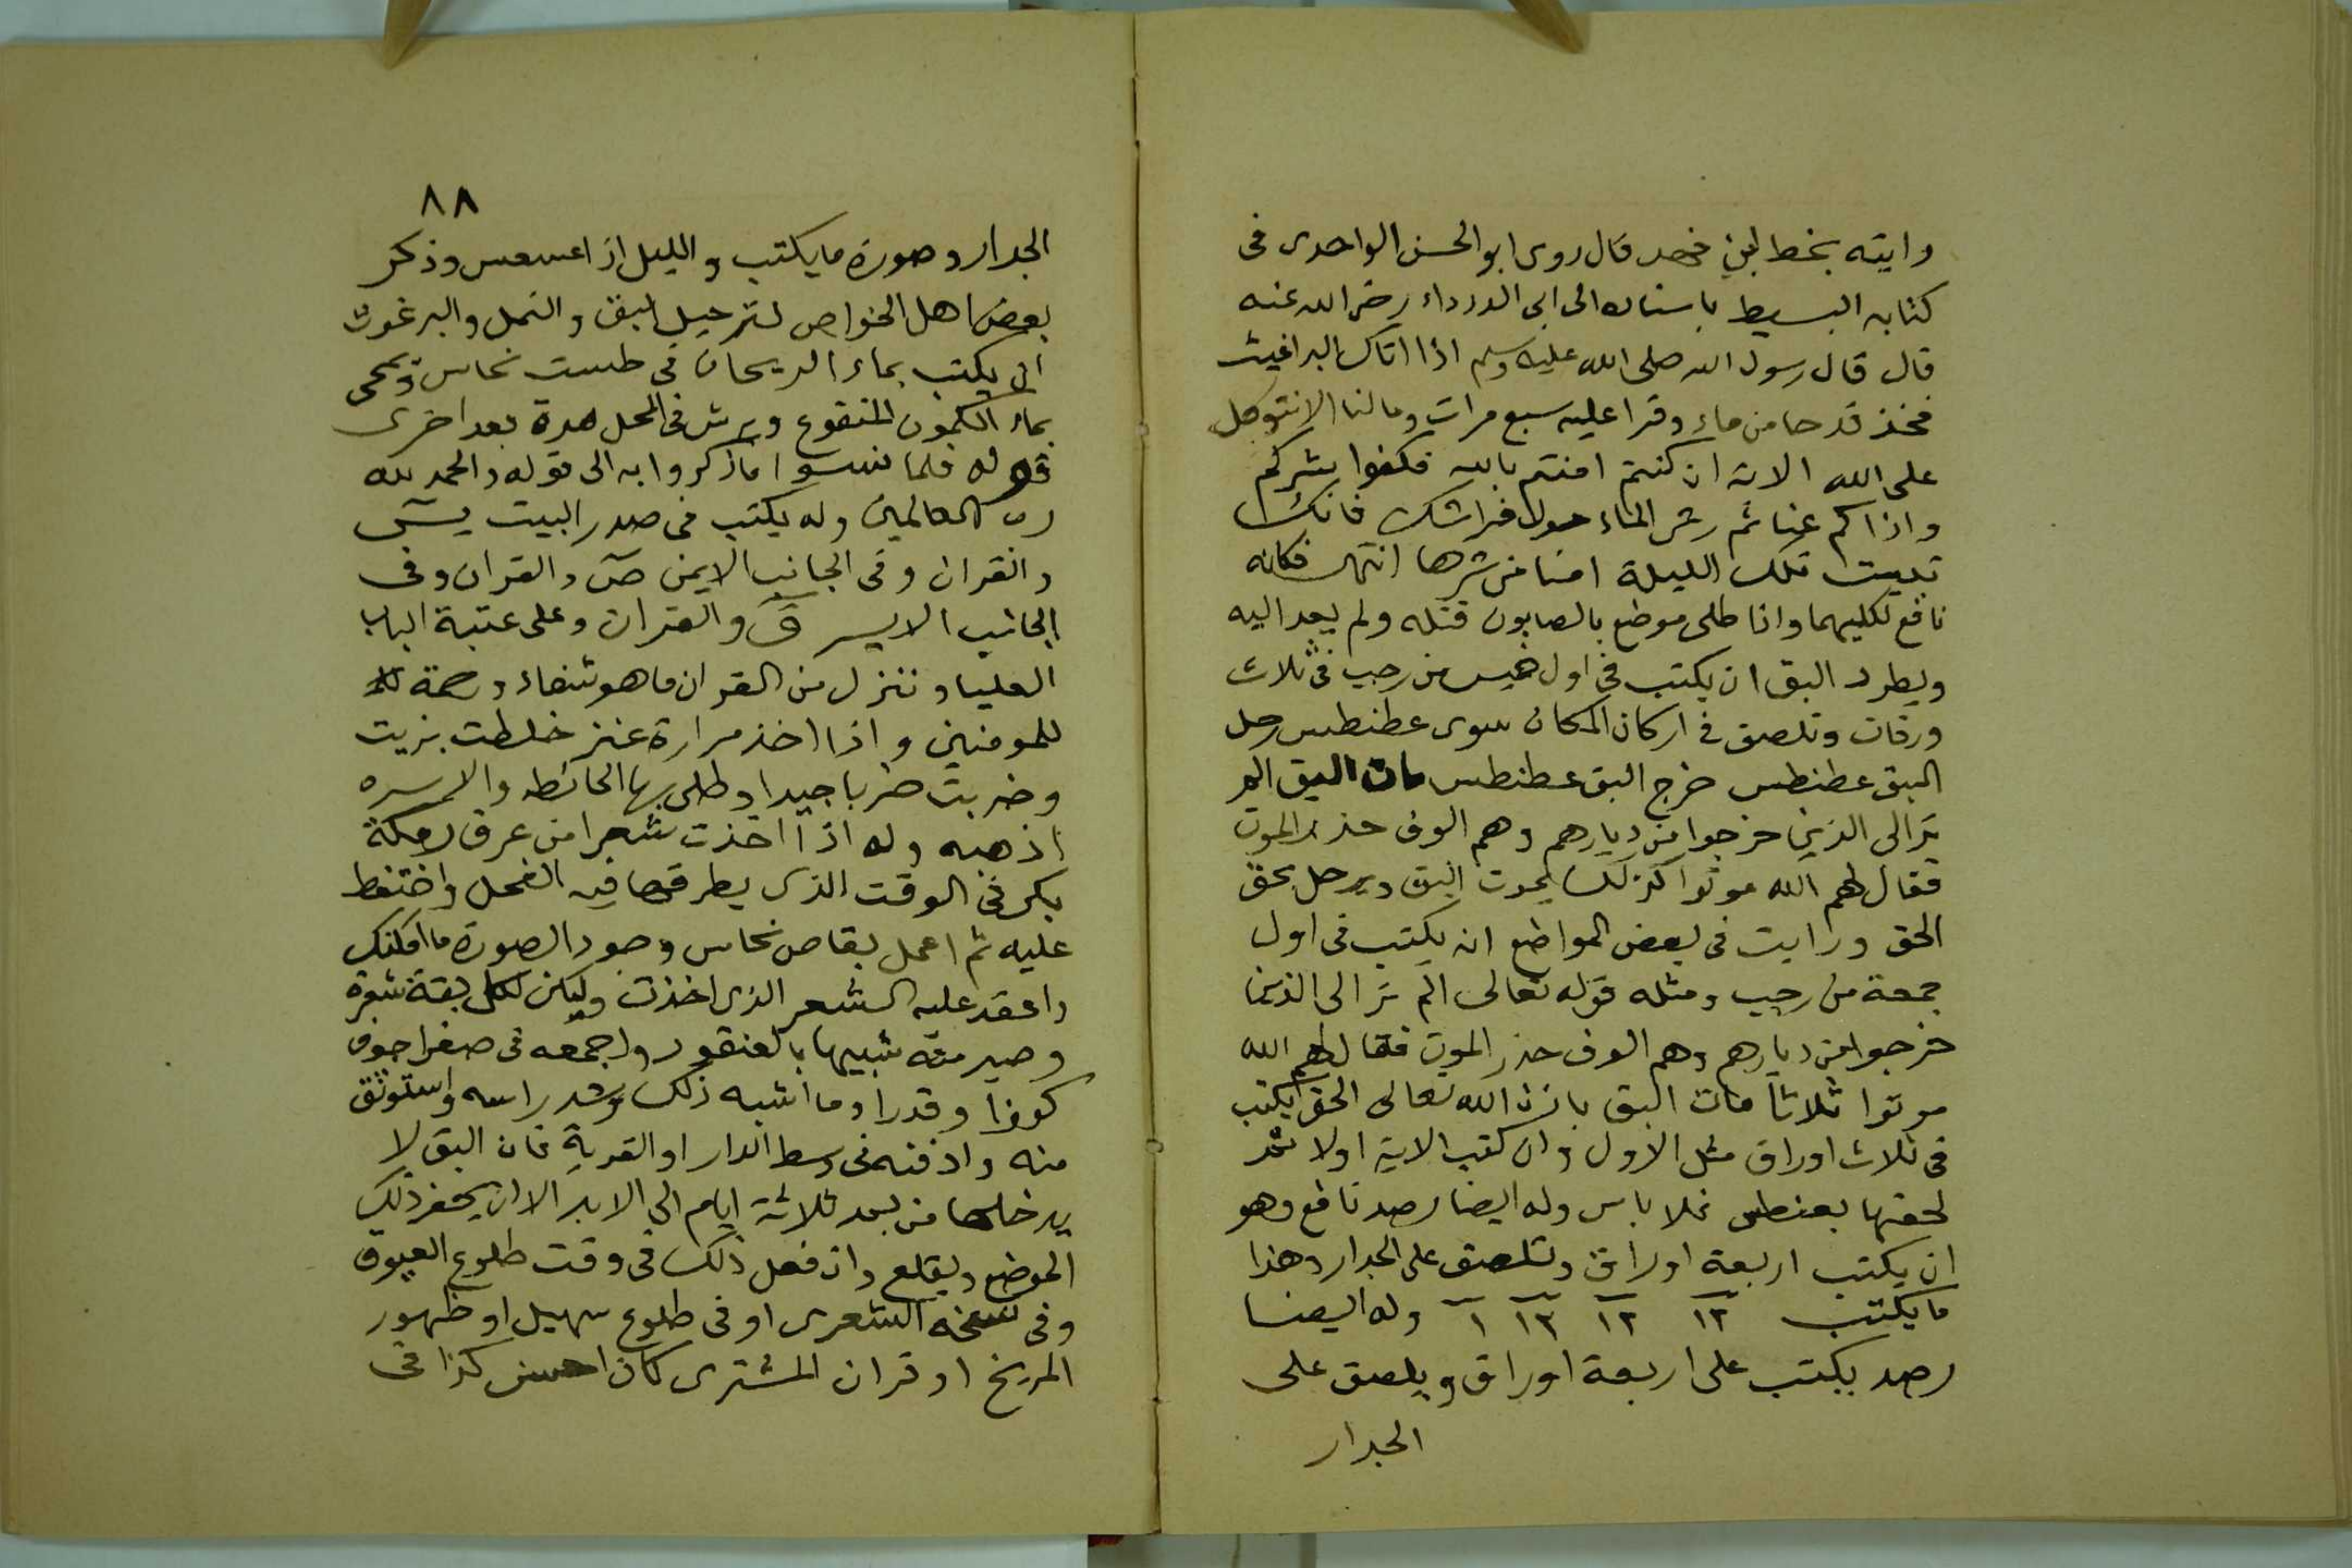 وايته بخط ابن فهد قال روى ابو الحسن الواحدى فى
كتابه البسيط باسناده الى ابى الدرداء رضى الله عنه
قال قال رسول الله صلى الله عليه وسلم اذا اتاك البراغيث
فخذ قدحا من ماء وقرا عليه سبع مرات ومالنا الا نتوكل
على الله الاية ان كنتم امنتم بالله فكفوا شركم
واذاكم عنا ثم رش الماء حول فراشك فانك
تبيت تلك الليلة امنا من شرها انتهى فكانه
نافع لكليهما واذا طلى موضع بالصابون قتله ولم يعد اليه
ويطرد البق ان يكتب فى اول خميس من رجب فى ثلاث
ورقات وتلصق فى اركان المكان سوى عطنطس رحل
البق عطنطس خرج البق عطنطس مات البق الم
تر الى الذين خرجوا من ديارهم وهم الوف حذر الموت
فقال لهم الله موتوا كذلك يموت البق ويرحل بحق
الحق ورايت فى بعض المواضع ان يكتب فى اول
جمعة من رجب ومثله قوله تعالى الم تر الى الذين
خرجوا من ديارهم وهم الوف حذر الموت فقال لهم الله
موتوا ثلاثا مات البق باذن الله تعالى الحق يكتب
فى ثلاث اوراق مثل الاول وان كتب الاية اولا ثم
لحقها بعنطس فلا باس وله ايضا رصد نافع وهو
ان يكتب اربعة اوراق وتلصق على الجدار وهذا
ما يكتب ١٢ ١٢ ١٣ ١ وله ايضا
رصد يكتب على اربعة اوراق ويلصق على
الجدار
٨٨
الجدار وصورة ما يكتب والليل اذا عسعس وذكر
بعض اهل الخواص لترحيل البق والنمل والبرغوث
ان يكتب بماء الريحان فى طست نحاس ويمحى
بماء الكمون المنقوع ويرش فى المحل مرة بعد اخرى
قوله فلما نسوا ما ذكروا به الى قوله والحمد لله
رب العالمين وله يكتب فى صدر البيت يس
والقران وفى الجانب الايمن ص والقران وفى
الجانب الايسر ق والقران وعلى عتبة الباب
العليا وننزل من القران ما هو شفاء ورحمة
للمومنين واذا اخذ مرارة عنز خلطت بزيت
وضربت ضربا جيدا وطلى بها الحائط والاسره
اذهبه وله اذا اخذت شعرا من عرق رمكة
بكر فى الوقت الذى يطرقها فيه الفحل واحتفظ
عليه ثم اعمل بقا من نحاس وجود الصورة ما امكنك
واعقد عليه الشعر الذى اخذت وليكن لكل بقة شعرة
وصير منه شبيها بالعنقود واجمعه فى صفر اجوف
كوزا وقدرا وما اشبه ذلك وشد راسه واستوثق
منه وادفنه فى وسط الدار او القرية فان البق لا
يدخلها من بعد ثلاثة ايام الى الابد الا ان يحفر ذلك
الموضع ويقلع وان فعل ذلك فى وقت طلوع العيوق
وفى نسخه الشعرى او فى طلوع سهيل او ظهور
المريخ او قران المشترى كان احسن كذا فى